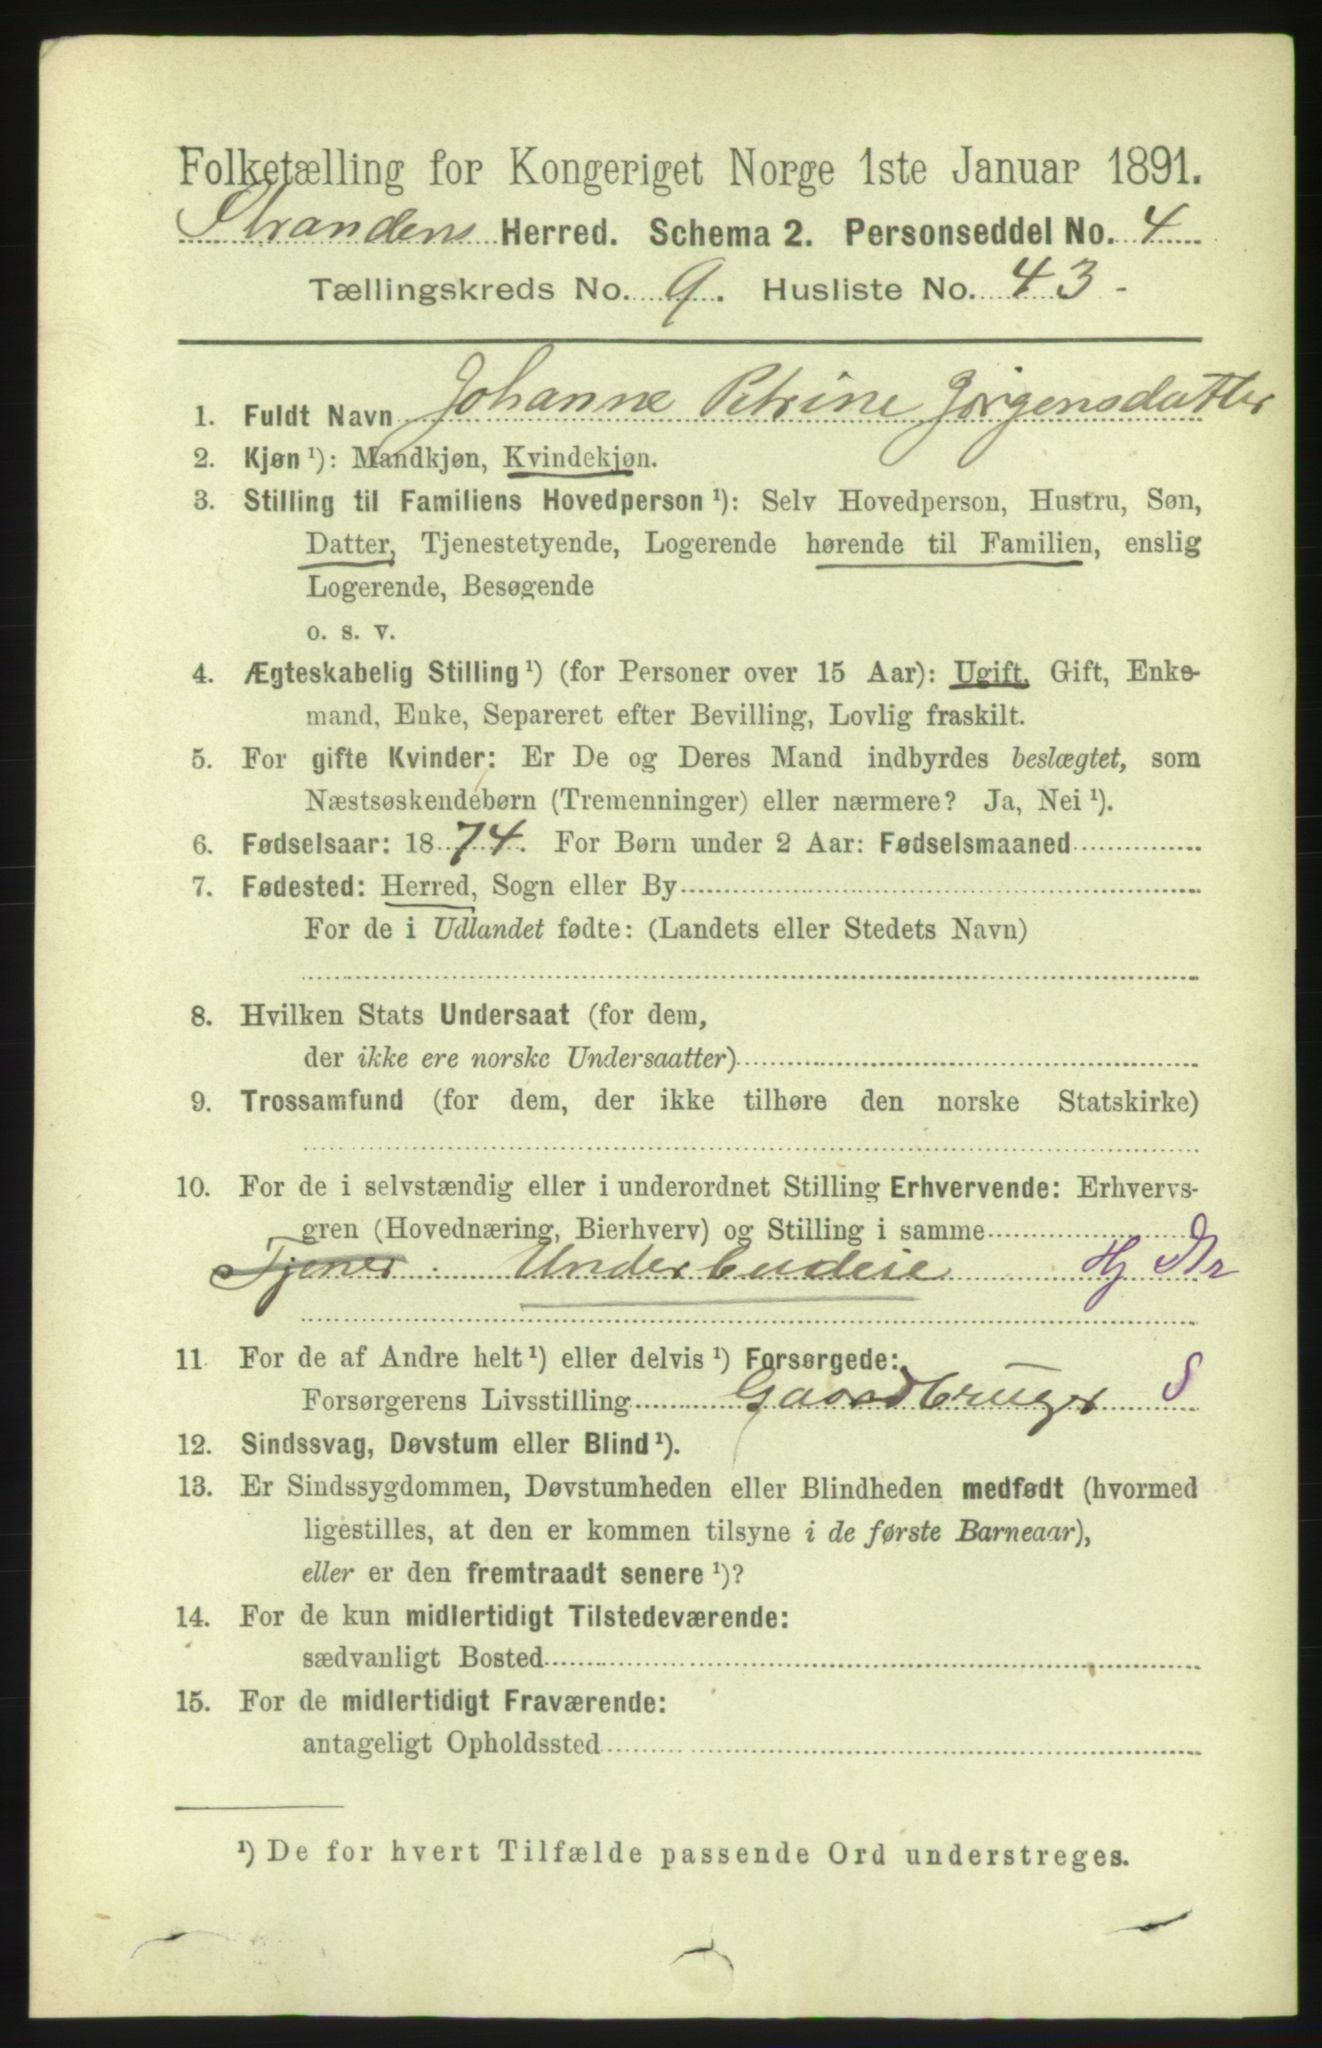 Folketælling for Kongeriget Norge 1ste Januar 1891.
Strandens Herred. Schema 2. Personseddel No. 4
Tællingskreds No. 9. Husliste No. 43
1. Fuldt Navn Johanne Petrine Jørgensdatter
2. Kjøn ¹): Mandkjøn, Kvindekjøn.
3. Stilling til Familiens Hovedperson ¹): Selv Hovedperson, Hustru, Søn,
Datter, Tjenestetyende, Logerende hørende til Familien, enslig
Logerende, Besøgende
o. s. v.
4. Ægteskabelig Stilling ¹) (for Personer over 15 Aar): Ugift, Gift, Enke-
mand, Enke, Separeret efter Bevilling, Lovlig fraskilt.
5. For gifte Kvinder: Er De og Deres Mand indbyrdes beslægtet, som
Næstsøskendebørn (Tremenninger) eller nærmere? Ja, Nei ¹).
6. Fødselsaar: 1874. For Børn under 2 Aar: Fødselsmaaned
7. Fødested: Herred, Sogn eller By
For de i Udlandet fødte: (Landets eller Stedets Navn)
8. Hvilken Stats Undersaat (for dem,
der ikke ere norske Undersaatter)
9. Trossamfund (for dem, der ikke tilhøre den norske Statskirke)
10. For de i selvstændig eller i underordnet Stilling Erhvervende: Erhvervs-
gren (Hovednæring, Bierhverv) og Stilling i samme
Tjener. Underbudeie Hj
11 For de af Andre helt ¹) eller delvis ¹) Forsørgede:
Forsørgerens Livsstilling Gaardbruger S
12. Sindssvag, Døvstum eller Blind ¹).
13. Er Sindssygdommen, Døvstumheden eller Blindheden medfødt (hvormed
ligestilles, at den er kommen tilsyne i de første Barneaar),
eller er den fremtraadt senere ¹)?
14. For de kun midlertidigt Tilstedeværende:
sædvanligt Bosted
15. For de midlertidigt Fraværende:
antageligt Opholdssted
¹) De for hvert Tilfælde passende Ord understreges.